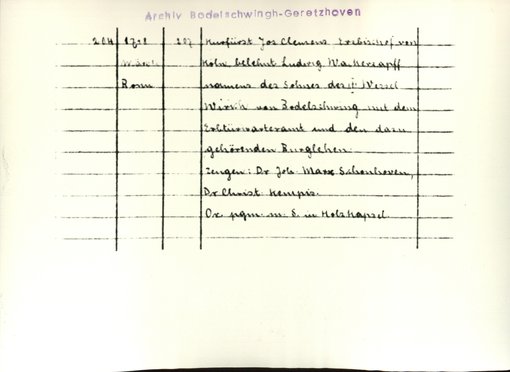 Archiv Bodelschwingh-Geretzhoven
204 1718 207 Kurfürst Jos Clemens Erzbischof von
März Köln, belehnt Ludwig Wassercapff
Bonn namens des Sohnes des Wessel
Wirich von Bodelschwing mit dem
Erbtürwarteramt und den dazu
gehörenden Burglehen.
Zeugen: Dr Joh. Marx Schönhoven,
Dr Christ. Kempis.
Or. pgm. m. S. in Holzkapsel